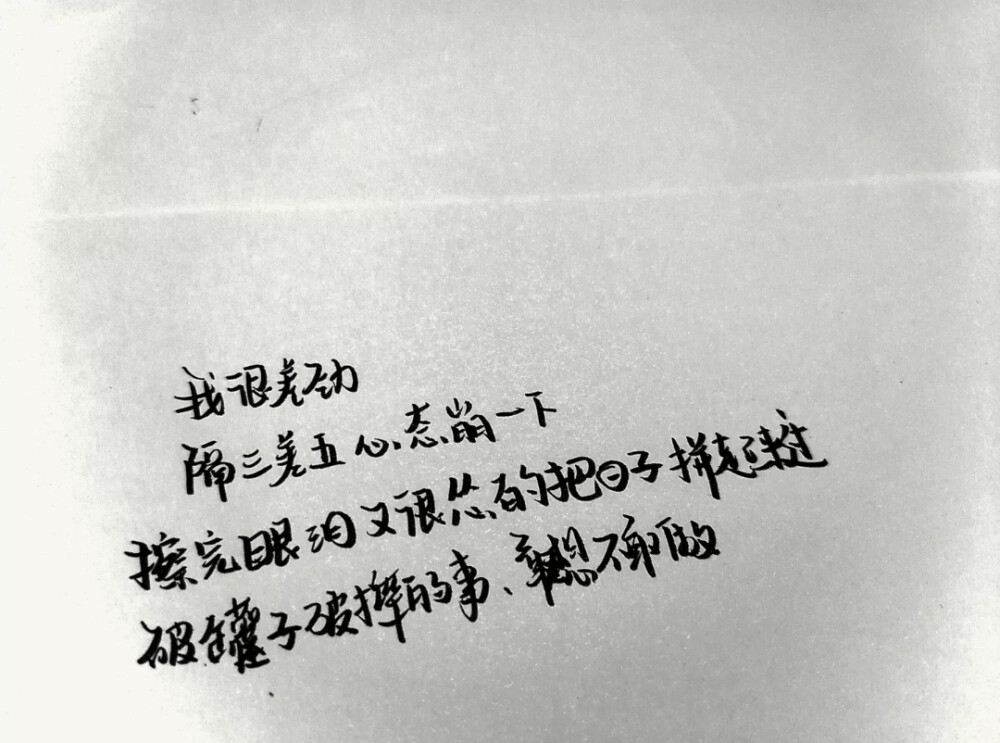 我很差劲
隔三差五心态崩一下
擦完眼泪又很怂的把日子拼起来过
破罐子破摔的事、敢想不敢做